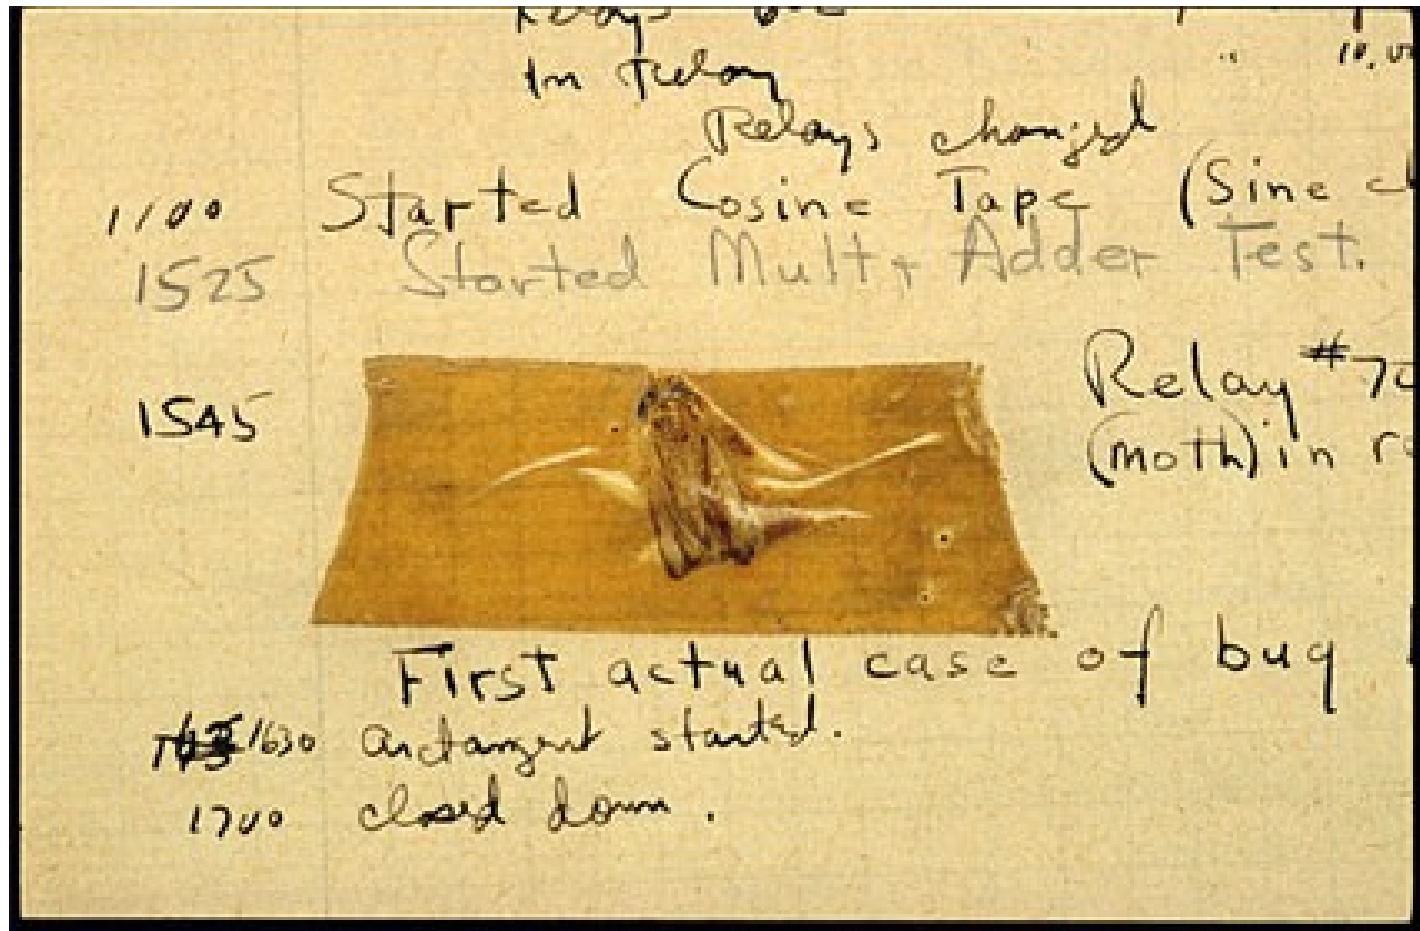 Relays
in relay
10,00
Relays changed
1100 Started Cosine Tape (Sine ch
1525 Started Mult + Adder Test.
1545 Relay #70
(moth) in re
First actual case of bug b
1630 arctangent started.
1700 closed down.